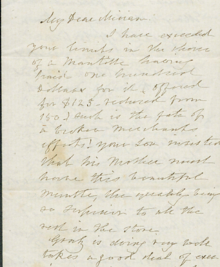 My Dear Miriam
I have exceeded
your limits in the choice
of a Mantilla having
paid one hundred
dollars for it, offered
for $125. reduced from
150) such is the fate of
a broken merchants
effects, your Son insisted
that his Mother must
have this beautiful
mantilla, the
so superior to all the
rest in the store.
Gratz is doing very well
takes a good deal of exer